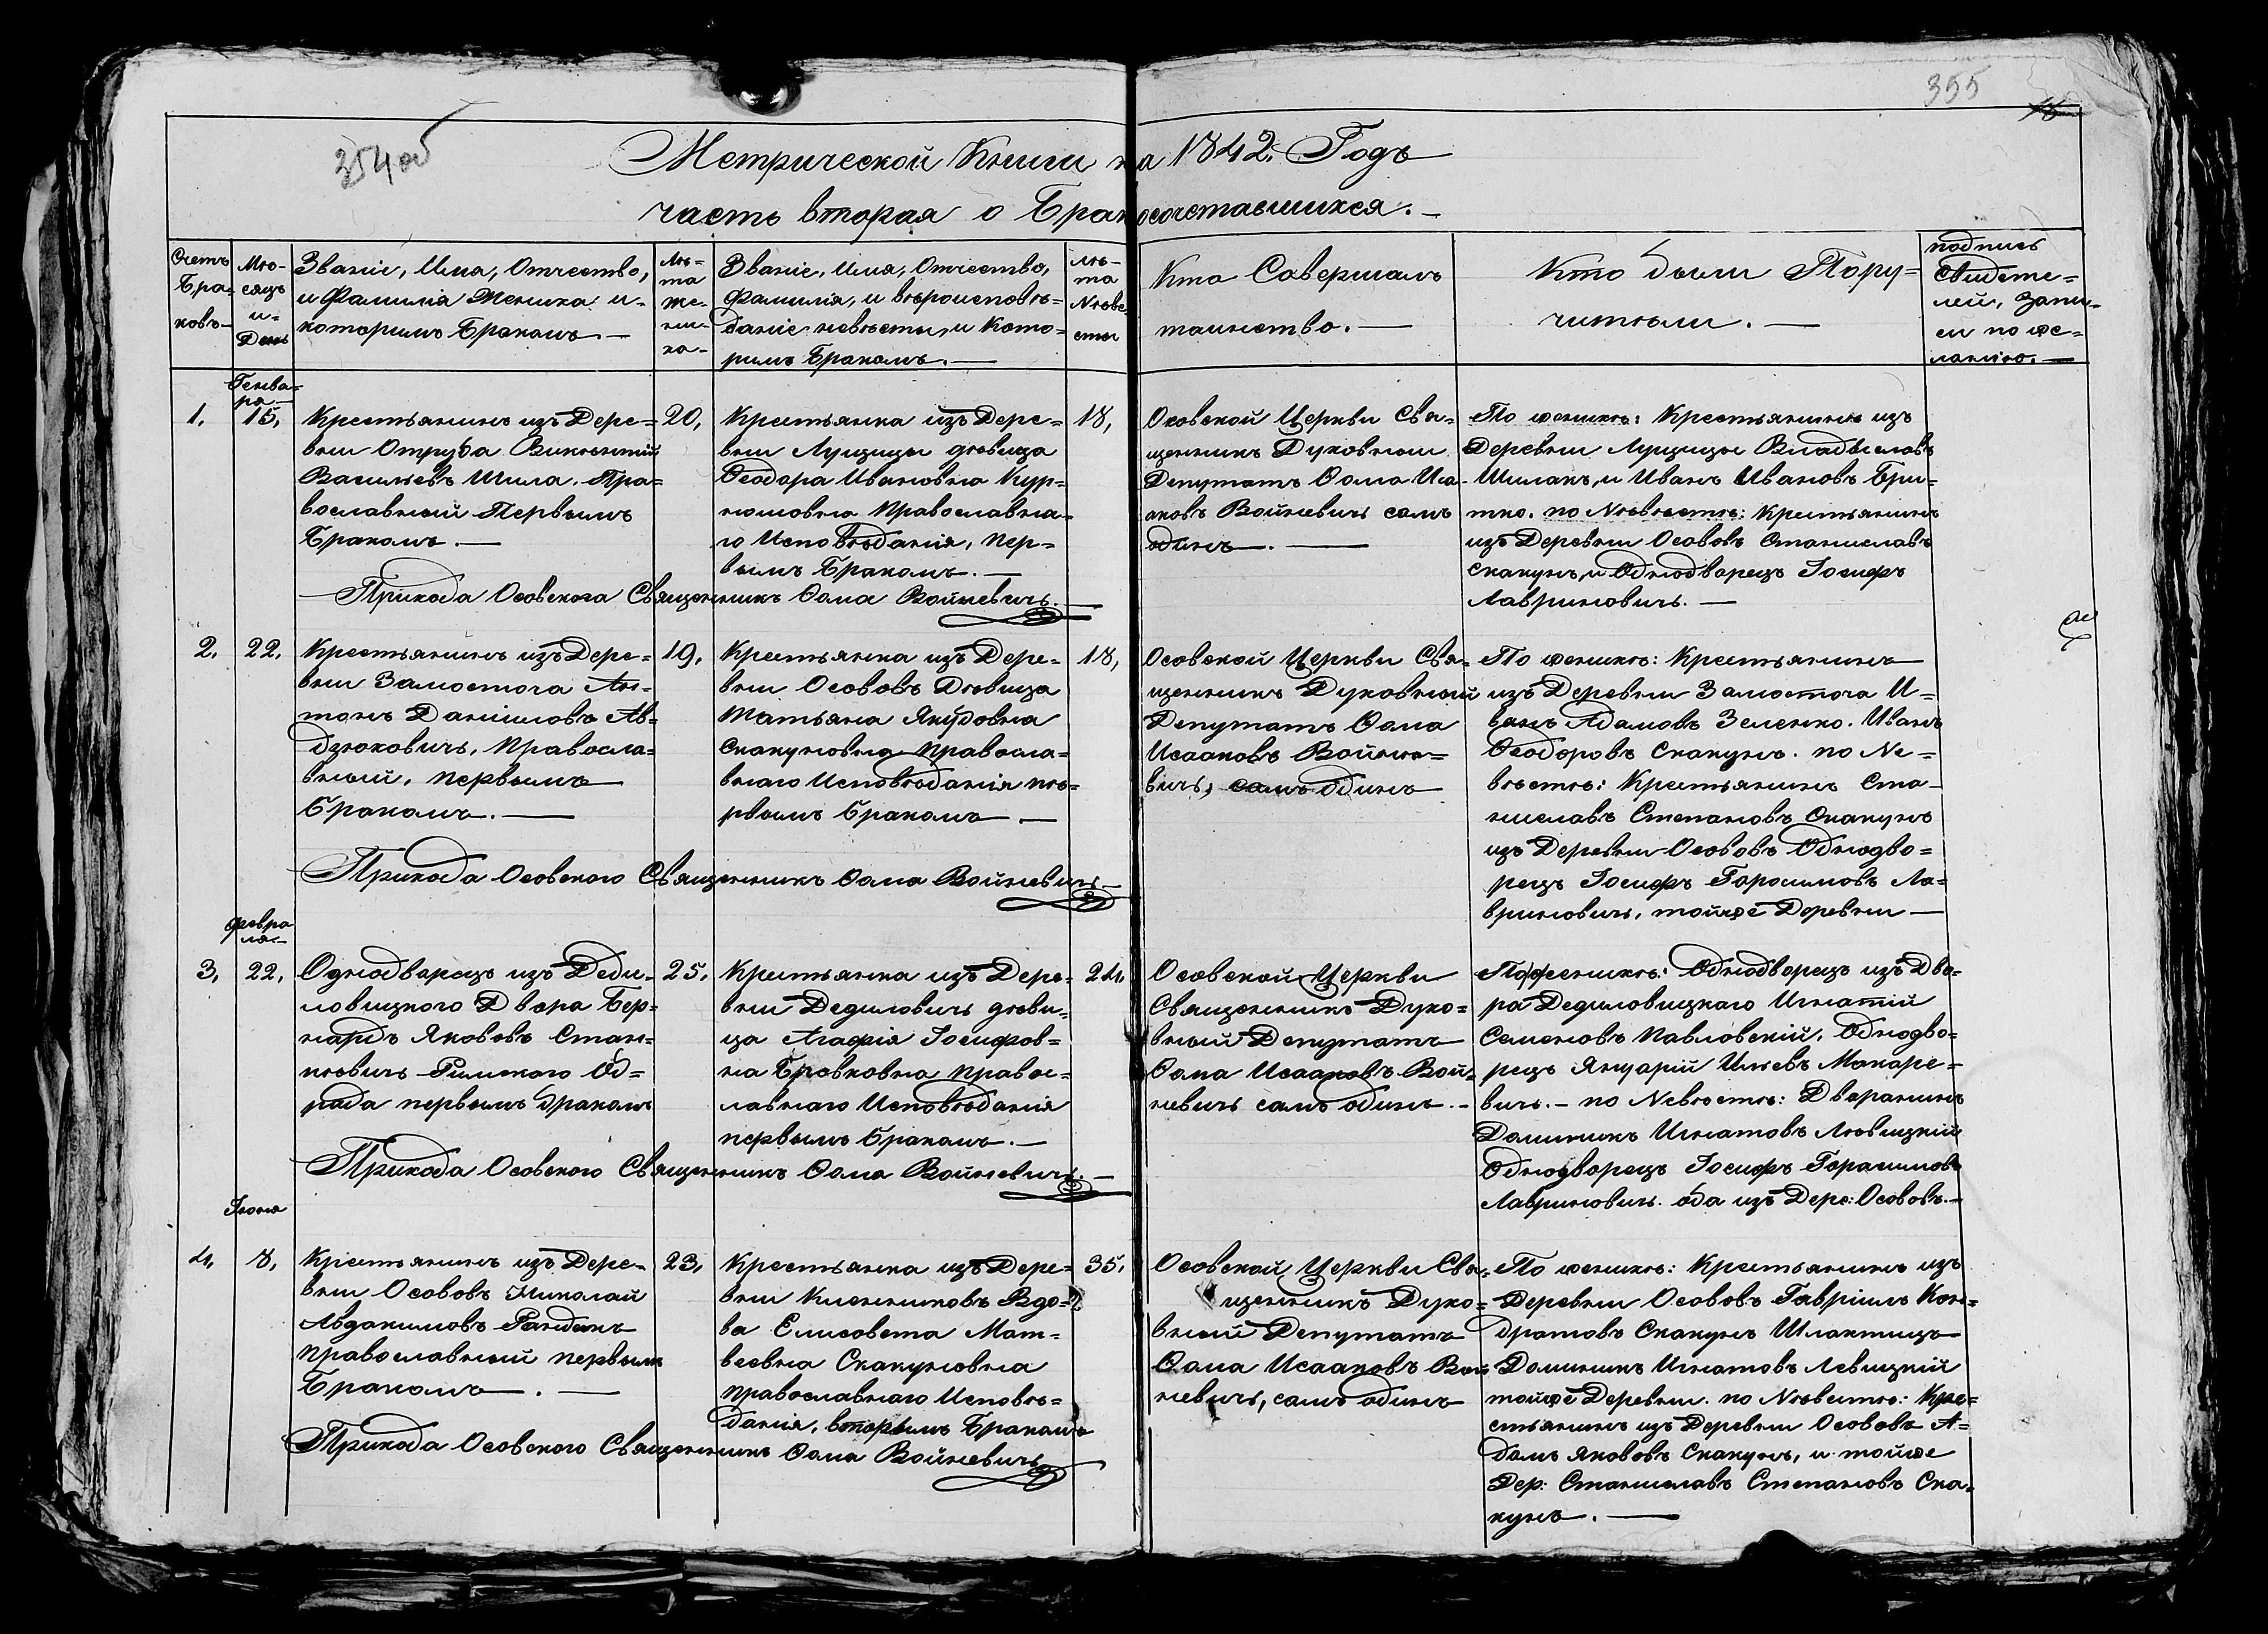 355
354об
Метрической Книги на 1842. Годъ
часть вторая о Бракосочетавшихся.
Счетъ Бра-
ковъ
Мѣ-
сяцъ
и
День
Званіе, Имя, Отчество,
и Фамилія Жениха и
которымъ Бракомъ.
Лѣ-
та
же-
ни-
ха
Званіе, Имя, Отчество,
Фамилія, и вѣроисповѣ-
даніе невѣсты, и Кото-
рымъ Бракомъ.
лѣ-
та
Невѣ-
сты
Кто Совершалъ
таинство.
Кто были Пору-
чители.
подпись
Свидѣте-
лей, Запи-
си по же-
ланію.
Генва-
ря
1. 15,
Крестьянинъ изъ Дере-
вни Отруба Викентій
Васильевъ Шила. Пра-
вославный Первымъ
Бракомъ.
20,
Крестьянка изъ Дере-
вни Лущицы дѣвица
Ѳеодора Ивановна Кур-
 Православна-
го Исповѣданія, пер-
вымъ Бракомъ.
18,
Осовской Церкви Свя-
щенникъ Духовный
Депутатъ Ѳома Иса-
аковъ Войневичъ самъ
одинъ.
По женихѣ: Крестьянинъ изъ
Деревни Лущицы Владиславъ
Шилакъ, и Иванъ Ивановъ Гри-
тко. по Невѣстѣ: Крестьянинъ
изъ Деревни Осововъ Станиславъ
Скакунъ, и Однодворецъ Іосифъ
Лавриновичъ.
Прихода Осовского Священникъ Ѳома Войневичъ.
2. 22.
Крестьянинъ изъ Дере-
вни Замосточа Ан-
тонъ Даниловъ Ав-
дзюковичъ, Правосла-
вный, первымъ
Бракомъ.
19,
Крестьянка изъ Дере-
вни Осововъ Дѣвица
Татьяна Якубовна
Скакуновна Правосла-
внаго Исповѣданія пѣ-
рвымъ бракомъ
18,
Осовской Церкви Свя-
щенникъ Духовный
Депутатъ Ѳома
Исааковъ Войне-
вичъ, самъ одинъ
По женихѣ: Крестьянинъ
изъ Деревни Замосточа И-
ванъ Адамовъ Зеленко. Иванъ
Ѳеодоровъ Скакунъ. по Не-
вѣстѣ: Крестьянинъ Ста-
ниславъ Степановъ Скакунъ
изъ Деревни Осововъ Однодво-
рецъ Іосифъ Горасимовъ Ла-
вриновичъ, тойже Деревни
Прихода Осовского Священникъ Ѳома Войневичъ
февра
ля
3, 22,
Однодворецъ изъ Деди-
ловицкого Двора Бер-
нардъ Яковъ Стан-
кевичъ Римского Об-
ряда первымъ бракомъ
25,
Крестьянка изъ Дере-
вни Дедиловичъ дѣви-
ца Агафія Іосифов-
на Бровковна правос-
лавнаго Исповѣданія
первымъ Бракомъ.
24,
Осовской Церкви
Священникъ Духо-
вный Депутатъ
Ѳома Исааковъ Вой-
невичъ самъ одинъ.
По женихѣ: Однодворецъ изъ Дво-
ра Дедиловицкаго Игнатій
Семеновъ Павловскій, Однодво-
рецъ Януарій Ильевъ Макаре-
вичъ. по Невѣстѣ: Дворанинъ
Доминикъ Игнатовъ Лѣвицкій
Однодворецъ Іосифъ Горасимовъ
Лавриновичъ. оба изъ Дере: Осововъ.
Прихода Осовского Священникъ Ѳома Войневичъ.
Іюня
4, 8,
Крестьянинъ изъ Дере-
вни Осововъ Николай
Авдакимовъ Рандакъ
православный первымъ
Бракомъ.
23,
Крестьянка изъ Дере-
вни Кленниковъ Вдо-
ва Елисовета Мат-
веевна Скакуновна
православнаго Исповѣ-
данія, вторымъ Бракомъ
35,
Осовской Церкви Свя-
щенникъ Духо-
вный Депутатъ
Ѳома Исааковъ Вой-
невичъ, самъ одинъ
По женихѣ: Крестьянинъ изъ
Деревни Осововъ Гавріилъ Кон-
дратовъ Скакунъ Шлахтицъ
Доминикъ Игнатовъ Левицкій
тойже Деревни. по Невѣстѣ: Кре-
стьянинъ изъ Деревни Осововъ А-
дамъ Яковъ Скакунъ, и тойже
Дер: Станиславъ Степановъ Ска-
кунъ.
Прихода Осовского Священникъ Ѳома Войневичъ